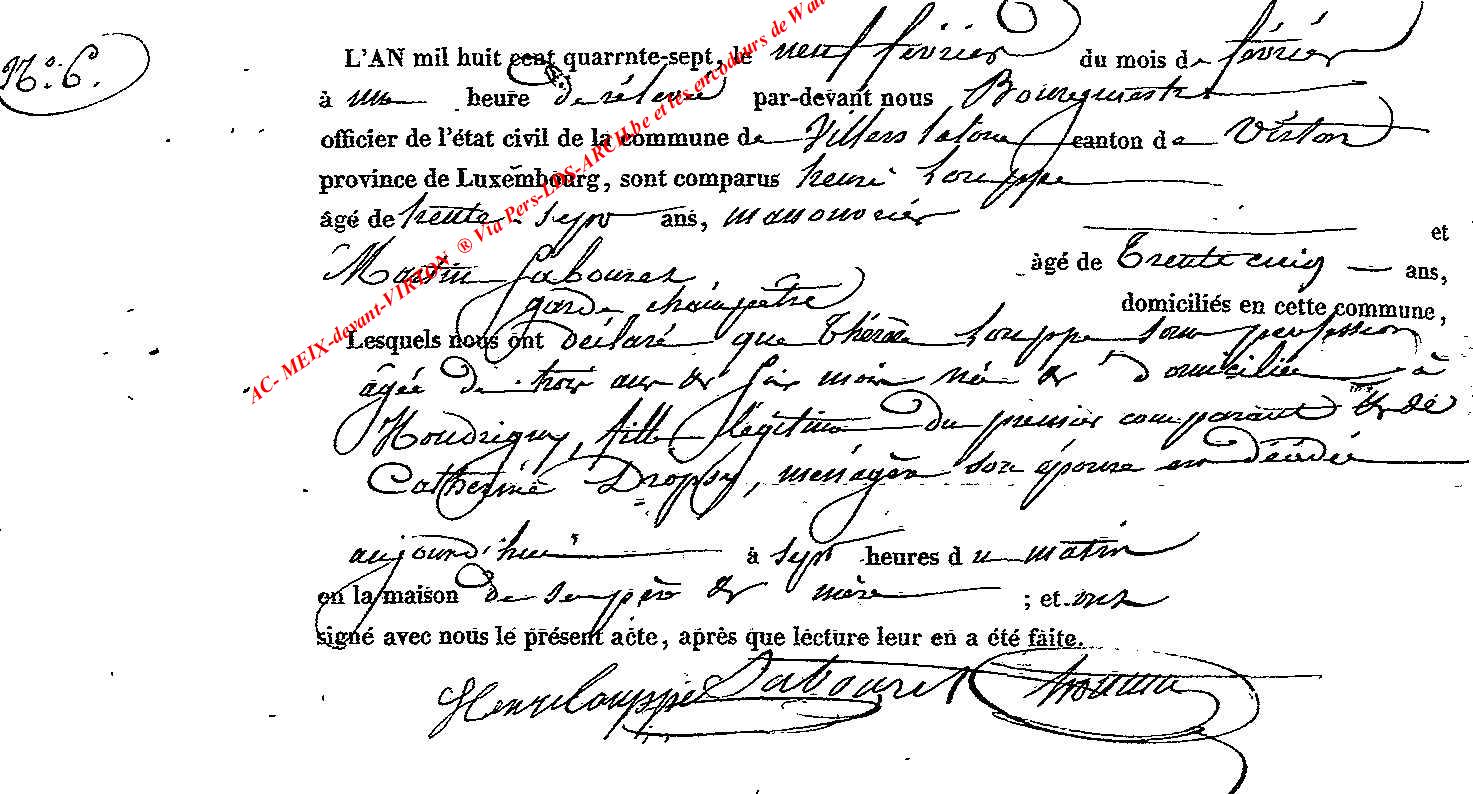 N.° 6.
L'AN mil huit cent quarrnte-sept, le neuf février du mois de février
à une heure de rélevée par-devant nous Bourguestre
officier de l'état civil de la commune de Villers latour canton de Virton
province de Luxembourg, sont comparus henri Louppe
âgé de trente sept ans, manouvrier et
Martin Labouret âgé de trente cinq ans,
garde champêtre domiciliés en cette commune,
Lesquels nous ont déclaré que thérèse Louppe sans profession
âgée de trois ans et six mois née et domiciliée à
Houdrigny, fille légitime du premier comparant et de
Catherine Dropsy, ménagère son épouse est décédée
aujourd'hui à sept heures du matin
en la maison de ses père et mère ; et ont
signé avec nous le présent acte, après que lecture leur en a été faite.
Henri Louppe Labouret
AC- MEIX-devant-VIRTON ® Via Pers-LDS-ARCH.be et les encodeurs de